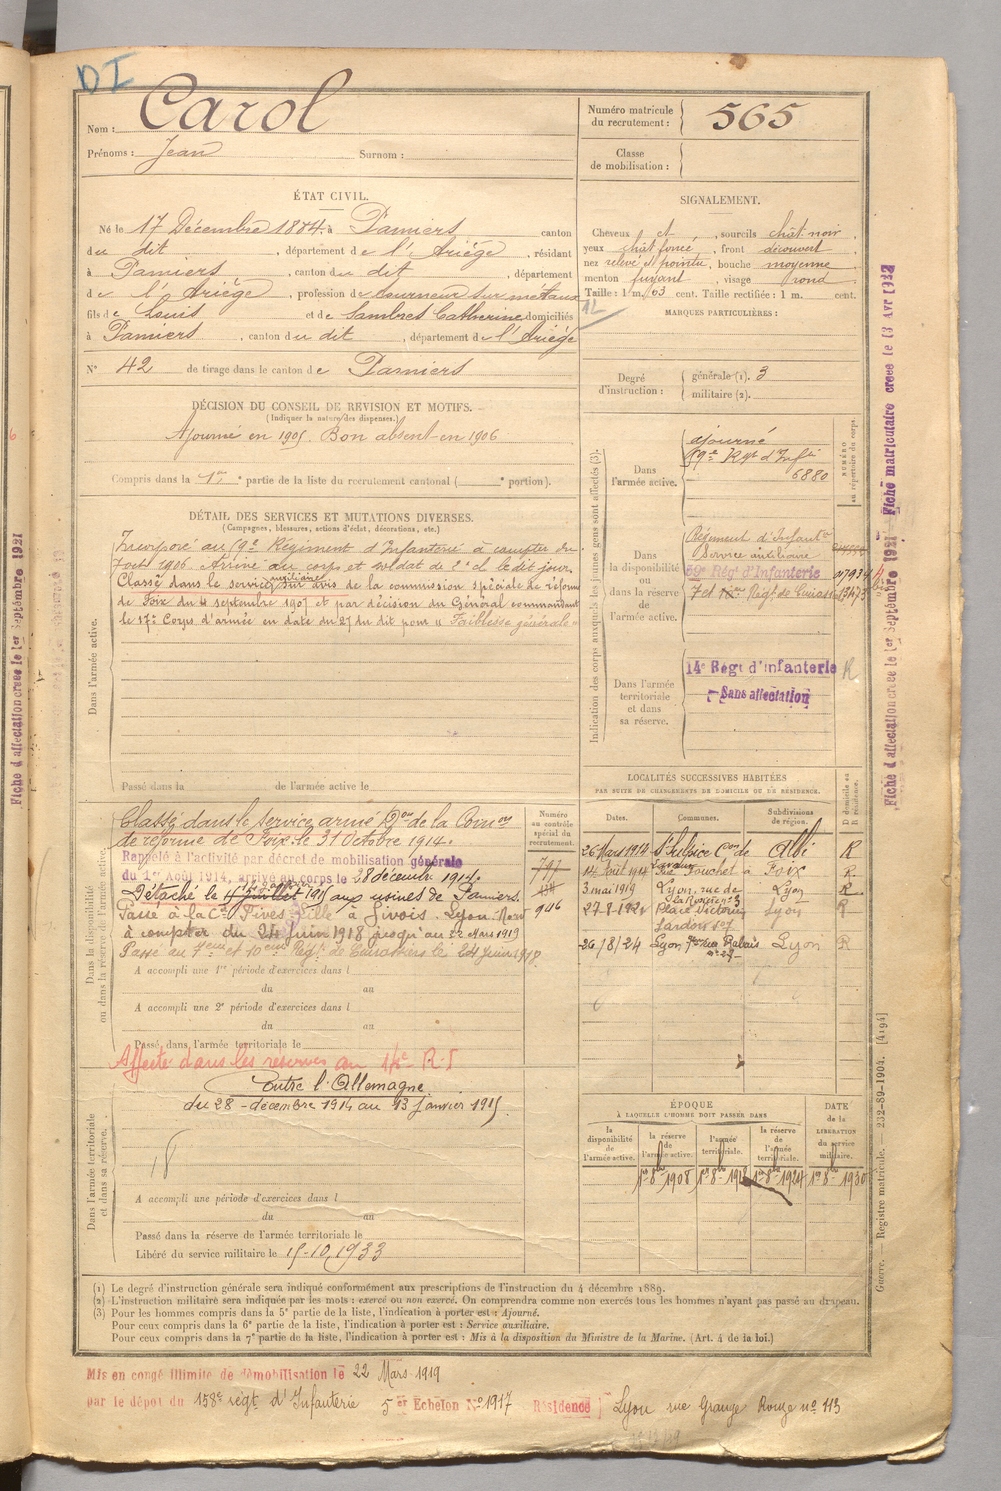 DI
Nom : Carol
Prénoms : Jean Surnom :
Numéro matricule du recrutement : 565
Classe de mobilisation :
ÉTAT CIVIL.
Né le 17 Décembre 1884 à Pamiers canton
du dit, département de l'Ariège, résidant
à Pamiers, canton du dit, département
de l'Ariège, profession de tourneur sur métaux
fils de Louis et de Sambres Catherine domiciliés
à Pamiers, canton du dit, département de l'Ariège
N° 42 de tirage dans le canton de Pamiers
SIGNALEMENT.
Cheveux et, sourcils chât noir,
yeux chât foncé, front découvert
nez relevé et pointu, bouche moyenne
menton fuyant, visage rond
Taille : 1 m. 63 cent. Taille rectifiée : 1 m. cent.
MARQUES PARTICULIÈRES :
Degré d'instruction : générale (1). 3
militaire (2).
DÉCISION DU CONSEIL DE REVISION ET MOTIFS.
(Indiquer la nature des dispenses.)
Ajourné en 1905. Bon absent en 1906
Compris dans la 1re partie de la liste du recrutement cantonal ( e portion).
DÉTAIL DES SERVICES ET MUTATIONS DIVERSES.
(Campagnes, blessures, actions d'éclat, décorations, etc.)
Dans l'armée active.
Incorporé au 59e Régiment d'Infanterie à compter du
7 octe 1906. Arrivé au corps et soldat de 2e cl. le dit jour.
Classé dans le service auxiliaire sur avis de la commission spéciale de réforme
de Foix du 4 septembre 1907 et par décision du Général commandant
le 17e Corps d'armée en date du 27 du dit pour "Faiblesse générale"
Passé dans la de l'armée active le
Indication des corps auxquels les jeunes gens sont affectés (3).
NUMÉRO au répertoire du corps.
Dans l'armée active.
ajourné
59e Rgt d'Infie
6880
Dans la disponibilité ou dans la réserve de l'armée active.
Régiment d'Infante
Service auxiliaire
59e Rég. d'Infanterie
Dans l'armée territoriale et dans sa réserve.
14e Régt d'Infanterie R
Sans affectation
LOCALITÉS SUCCESSIVES HABITÉES
PAR SUITE DE CHANGEMENTS DE DOMICILE OU DE RÉSIDENCE.
Dates. Communes. Subdivisions de région. D domicile ou R résidence.
26 Mars 1914 St Sulpice Con de Lavaur Albi R
14 Août 1914 Rue Fouchet à Foix R
3 mai 1919 Lyon, rue de la Ronceray 3 Lyon R
Place Victorien Sardou no 7 Lyon R
26/8/24 Lyon Lyon R
Dans la disponibilité ou dans la réserve de l'armée active.
Numéro au contrôle spécial du recrutement.
Classé dans le service armé Don de la Comon
de réforme de Foix le 31 Octobre 1914.
Rappelé à l'activité par décret de mobilisation générale
du 1er Août 1914, arrivé au corps le 28 décembre 1914.
Détaché le juillet 1915 aux usines de Pamiers.
Passé à la Cie Fives Lille à Givors. Lyon
à compter du 24 juin 1918 jusqu'au 22 Mars 1919
Passé au 7eme et 10eme Régt de Cuirassiers le 24 juin 1918
797
946
A accompli une 1re période d'exercices dans l
du au
A accompli une 2e période d'exercices dans l
du au
Passé dans l'armée territoriale le
Affecté dans les réserves au 14e R.I
Dans l'armée territoriale et dans sa réserve.
Contre l'Allemagne
du 28 décembre 1914 au 13 janvier 1915.
A accompli une période d'exercices dans l
du au
Passé dans la réserve de l'armée territoriale le
Libéré du service militaire le 15-10-1933
ÉPOQUE
À LAQUELLE L'HOMME DOIT PASSER DANS
la disponibilité de l'armée active.
la réserve de l'armée active.
l'armée territoriale.
la réserve de l'armée territoriale.
DATE de la LIBÉRATION du service militaire.
1er 8bre 1908 1er 8bre 1918 1er 8bre 1924 1er 8bre 1930
(1) Le degré d'instruction générale sera indiqué conformément aux prescriptions de l'instruction du 4 décembre 1889.
(2) L'instruction militaire sera indiquée par les mots : exercé ou non exercé. On comprendra comme non exercés tous les hommes n'ayant pas passé au drapeau.
(3) Pour les hommes compris dans la 5e partie de la liste, l'indication à porter est : Ajourné.
Pour ceux compris dans la 6e partie de la liste, l'indication à porter est : Service auxiliaire.
Pour ceux compris dans la 7e partie de la liste, l'indication à porter est : Mis à la disposition du Ministre de la Marine. (Art. 4 de la loi.)
Mis en congé illimité de démobilisation le 22 Mars 1919
par le dépôt du 158e régt d'Infanterie 5er Echelon No 1917 Résidence Lyon rue Grange Rouge no 113
Guerre. — Registre matricule. — 232-89-1904. [4194]
Fiche d'affectation créée le 1er Septembre 1921 Fiche matriculaire créée le 13 Avr 1932
Fiche d'affectation créée le 1er Septembre 1921